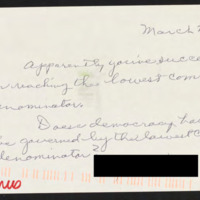 March
Apparently you've succee
reaching the lowest com
denominator.
Does democracy ha
be governed by the lowest c
denominator?